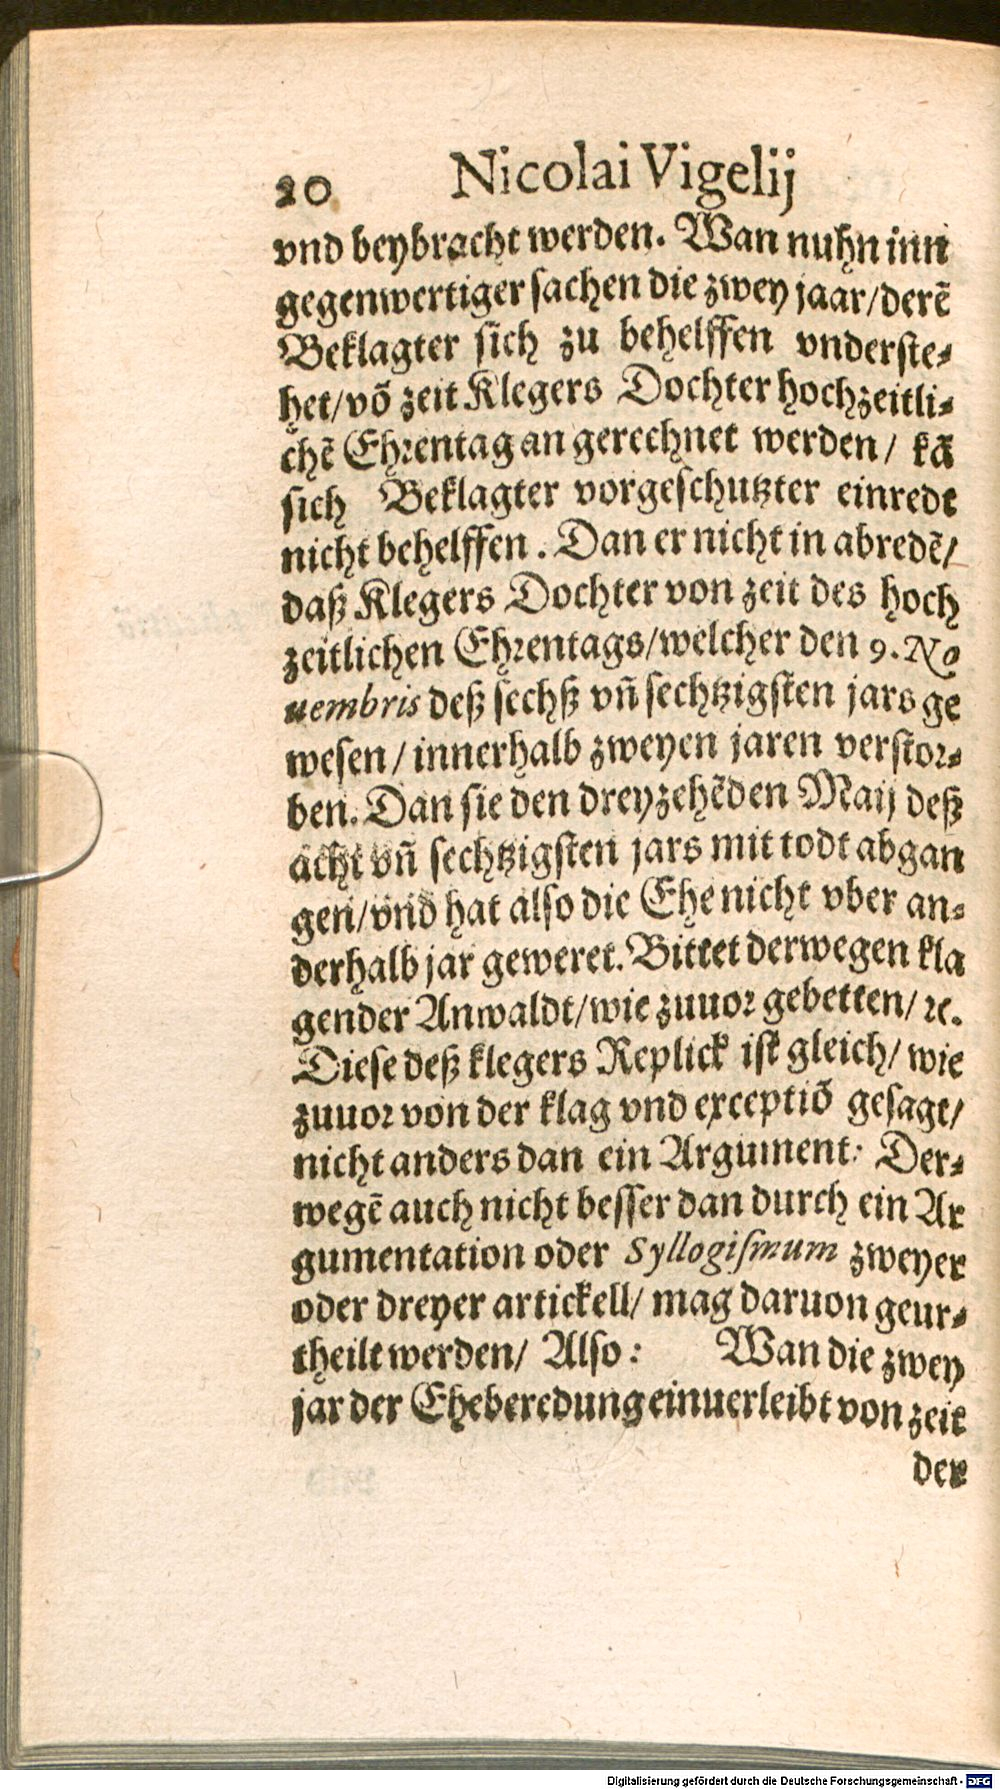 20 Nicolai Vigelij
vnd beybracht werden. Wan nuhn inn
gegenwertiger sachen die zwey jaar/derẽ
Beklagter sich zu behelffen vnderste-
het/võ zeit Klegers Dochter hochzeitli-
chẽ Ehrentag an gerechnet werden/ kã
sich Beklagter vorgeschutzter einrede
nicht behelffen. Dan er nicht in abredẽ/
daß Klegers Dochter von zeit des hoch
zeitlichen Ehrentags/welcher den 9. No
uembris deß sechß vñ sechtzigsten jars ge
wesen/ innerhalb zweyen jaren verstor-
ben. Dan sie den dreyzehẽden Maij deß
acht vñ sechtzigsten jars mit todt abgan
gen/vnd hat also die Ehe nicht vber an-
derhalb jar geweret. Bittet derwegen kla
gender Anwaldt/wie zuuor gebetten/ ꝛc.
Diese deß klegers Replick ist gleich/ wie
zuuor von der klag vnd exceptiõ gesagt/
nicht anders dan ein Argument: Der-
wegẽ auch nicht besser dan durch ein Ar
gumentation oder Syllogiſmum zweyer
oder dreyer artickell/ mag daruon geur-
theilt werden/ Also: Wan die zwey
jar der Eheberedung einuerleibt von zeit
der
Digitalisierung gefördert durch die Deutsche Forschungsgemeinschaft - DFG